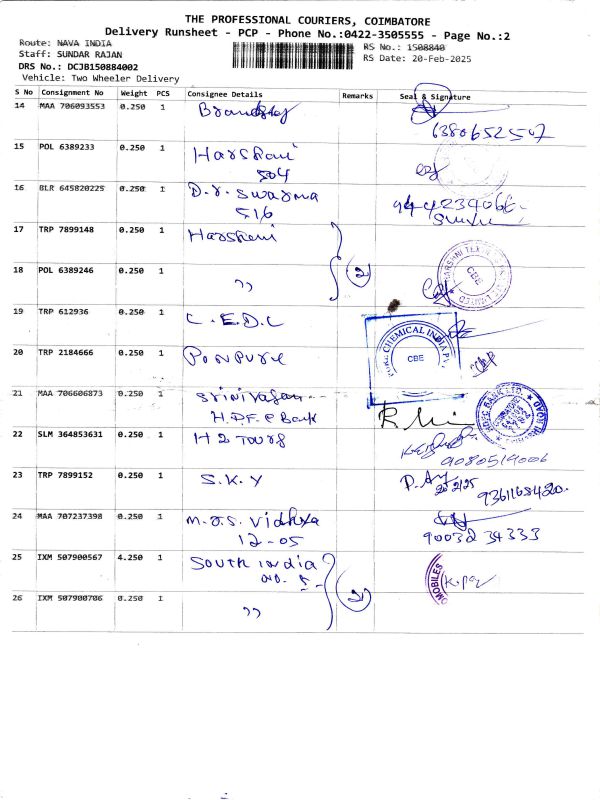 THE PROFESSIONAL COURIERS, COIMBATORE
Delivery Runsheet - PCP - Phone No.:0422-3505555 - Page No.:2
Route: NAVA INDIA
Staff: SUNDAR RAJAN
DRS No.: DCJB150884002
Vehicle: Two Wheeler Delivery
RS No.: 1508840
RS Date: 20-Feb-2025
S No Consignment No Weight PCS Consignee Details Remarks Seal & Signature
14 MAA 706093553 0.250 1
6380652507
15 POL 6389233 0.250 1 Harshani
504
16 BLR 645820225 0.250 1 D.r. Swarma
516
17 TRP 7899148 0.250 1 Harshani
18 POL 6389246 0.250 1 ,, 2
CBE
19 TRP 612936 0.250 1 C.E.D.C
20 TRP 2184666 0.250 1 Ponpure
CHEMICAL INDIA
CBE
21 MAA 706606873 0.250 1 Srinivasan
H.D.F.C Bank
22 SLM 364853631 0.250 1 H2 Tours
9080514006
23 TRP 7899152 0.250 1 S.K.Y
20/2/25
9361168420
24 MAA 707237398 0.250 1 M.S. Vidhya
12-05
90032 34333
25 IXM 507900567 4.250 1 South India
OMOBILES
26 IXM 507900706 0.250 1 ,, 2